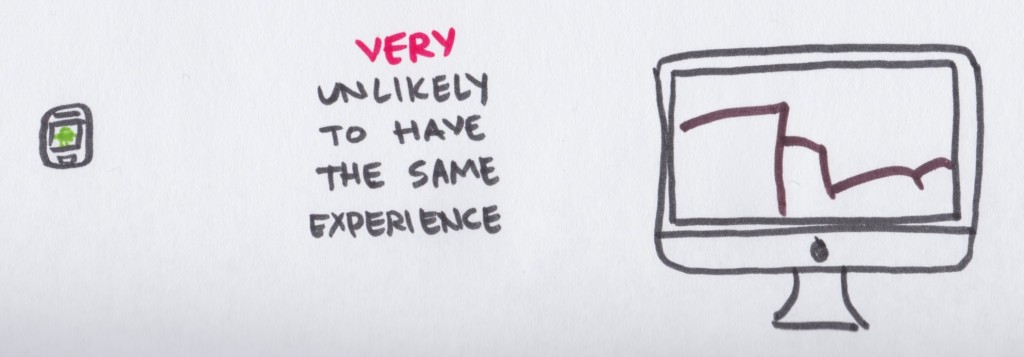 VERY
UNLIKELY
TO HAVE
THE SAME
EXPERIENCE